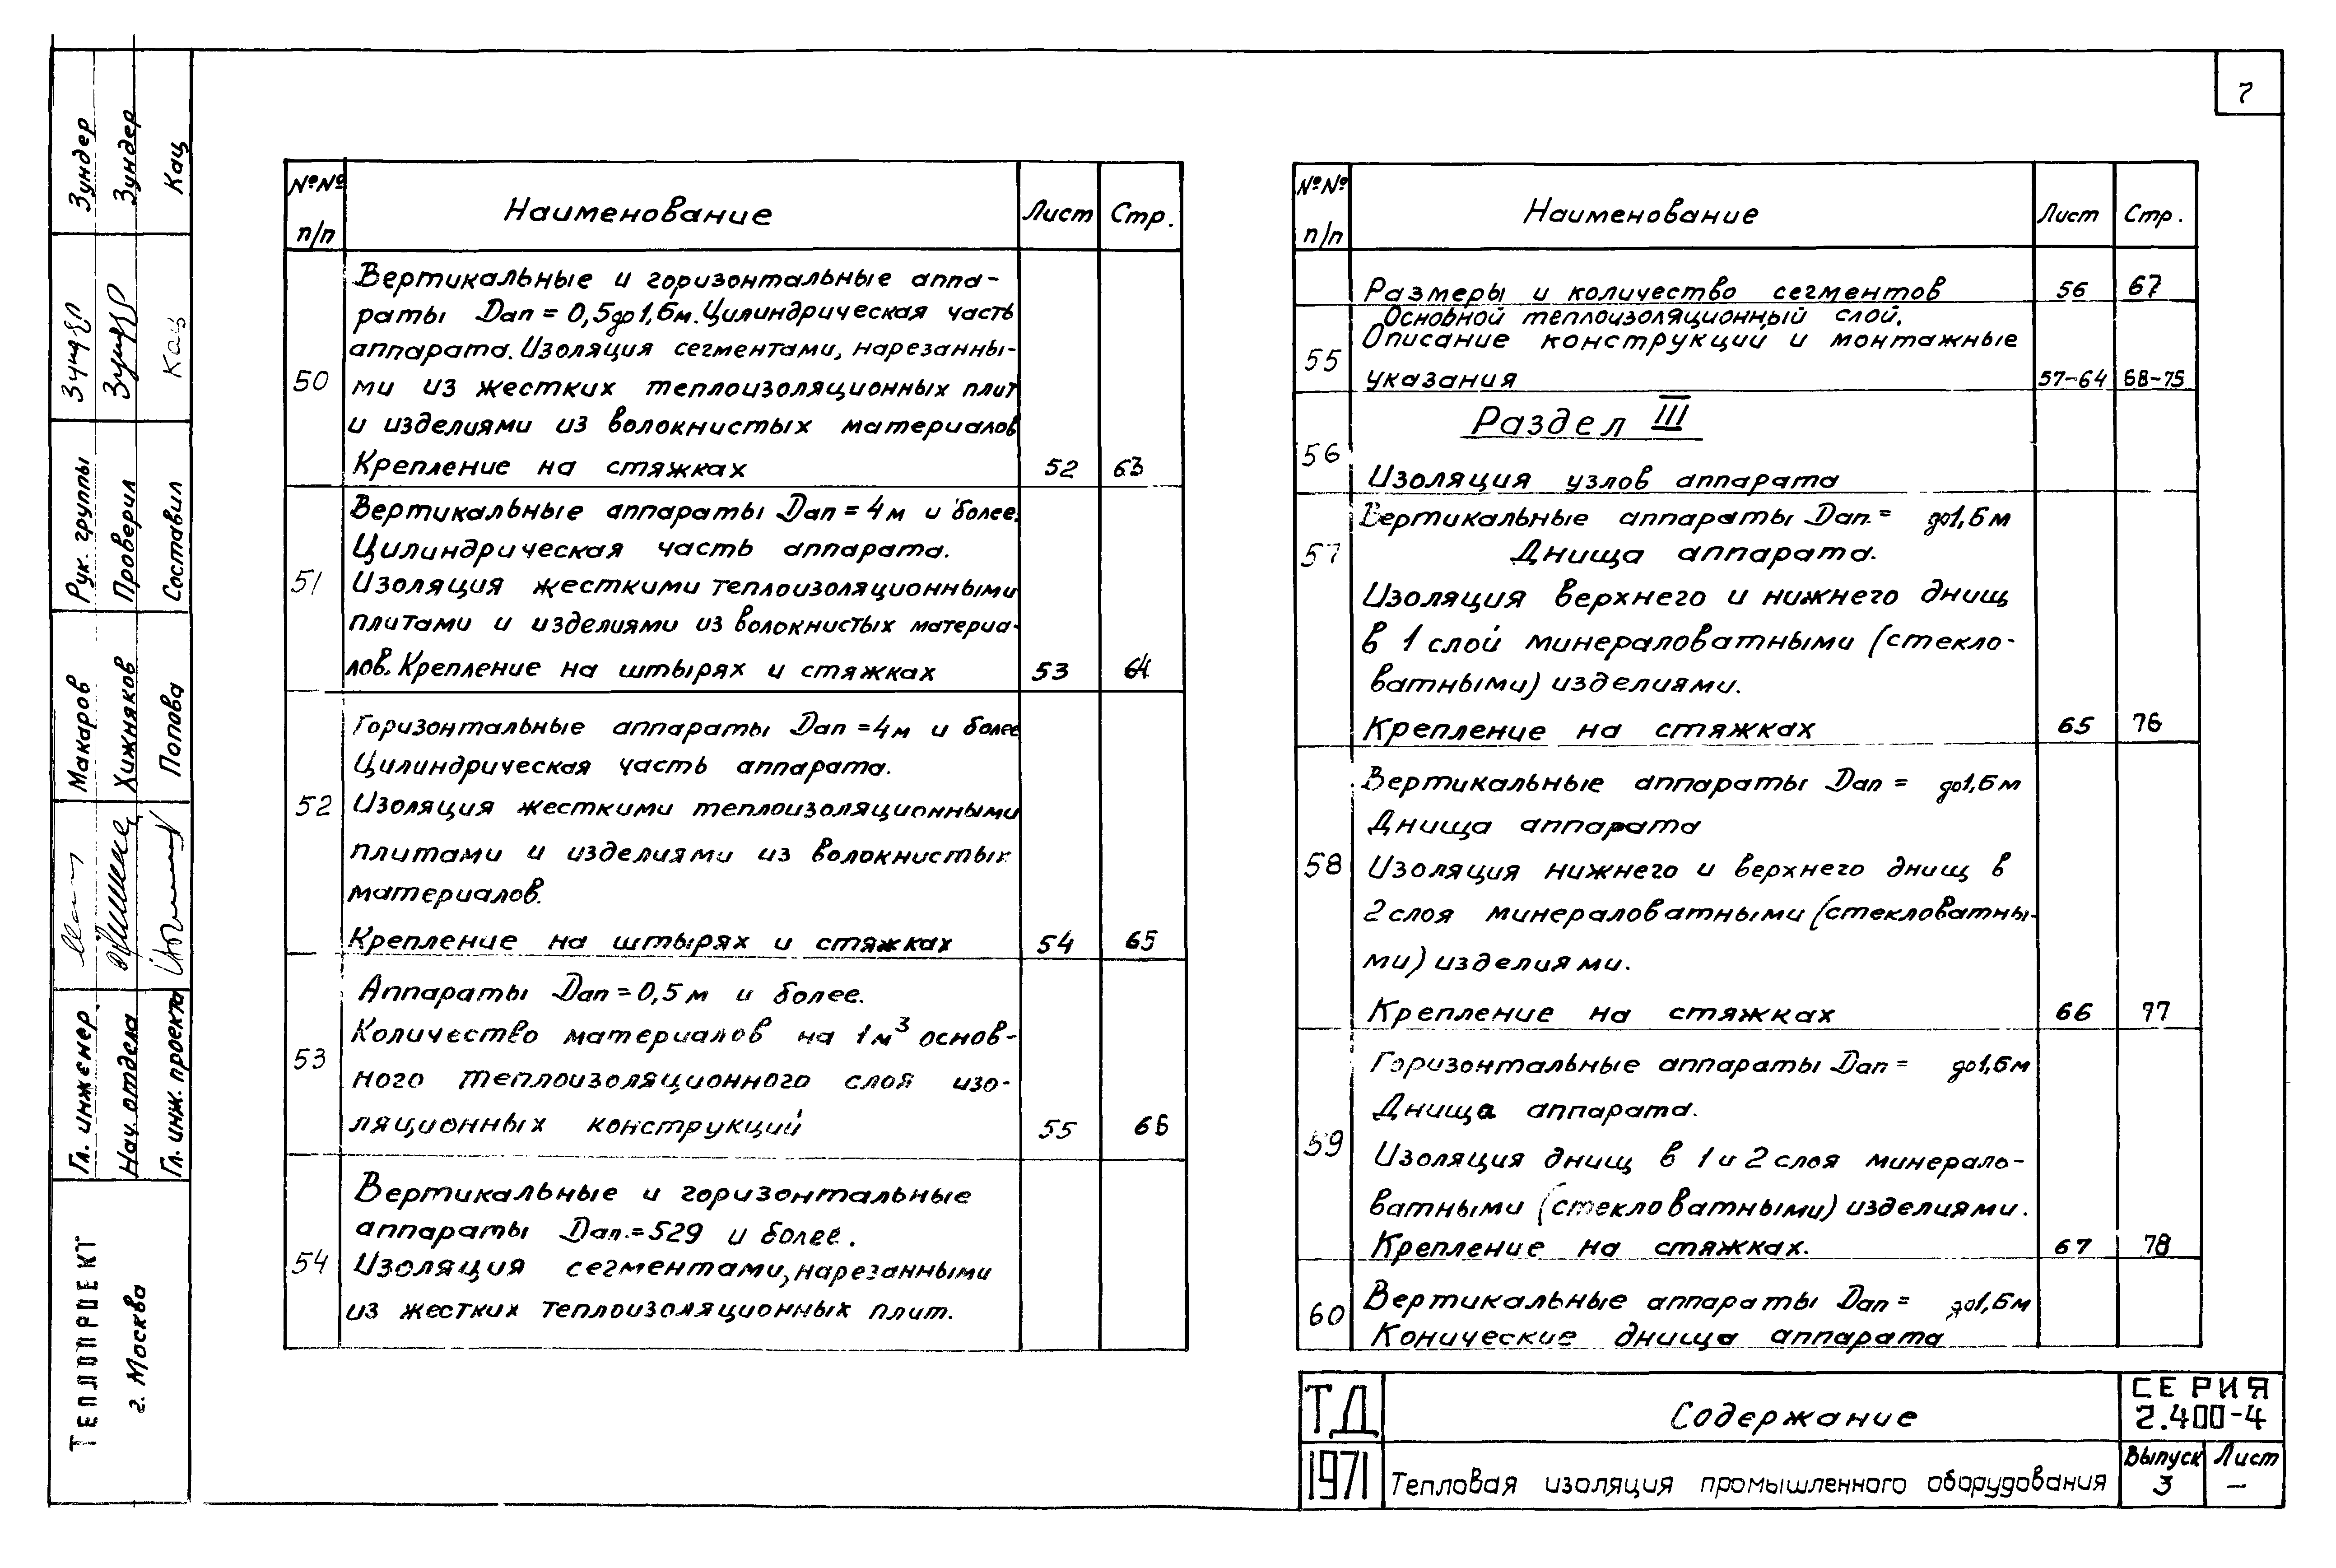 7
№№ п/п Наименование Лист Стр.
50
Вертикальные и горизонтальные аппа-
раты Dап = 0,5до1,6м. Цилиндрическая часть
аппарата. Изоляция сегментами, нарезанны-
ми из жестких теплоизоляционных плит
и изделиями из волокнистых материалов
Крепление на стяжках 52 63
51
Вертикальные аппараты Dап = 4м и более.
Цилиндрическая часть аппарата.
Изоляция жесткими теплоизоляционными
плитами и изделиями из волокнистых материа-
лов. Крепление на штырях и стяжках 53 64
52
Горизонтальные аппараты Dап =4м и более
Цилиндрическая часть аппарата.
Изоляция жесткими теплоизоляционными
плитами и изделиями из волокнистых
материалов.
Крепление на штырях и стяжках 54 65
53
Аппараты Dап = 0,5м и более.
Количество материалов на 1м³ основ-
ного теплоизоляционного слоя изо-
ляционных конструкций 55 66
54
Вертикальные и горизонтальные
аппараты Dап.=529 и более.
Изоляция сегментами, нарезанными
из жестких теплоизоляционных плит.
№№ п/п Наименование Лист Стр.
Размеры и количество сегментов 56 67
55
Основной теплоизоляционный слой.
Описание конструкций и монтажные
указания 57-64 68-75
56
Раздел III
Изоляция узлов аппарата
57
Вертикальные аппараты Dап.= до1,6м
Днища аппарата.
Изоляция верхнего и нижнего днищ
в 1 слой минераловатными (стекло-
ватными) изделиями.
Крепление на стяжках 65 76
58
Вертикальные аппараты Dап = до1,6м
Днища аппарата
Изоляция нижнего и верхнего днищ в
2 слоя минераловатными (стекловатны-
ми) изделиями.
Крепление на стяжках 66 77
59
Горизонтальные аппараты Dап = до1,6м
Днища аппарата.
Изоляция днищ в 1 и 2 слоя минерало-
ватными (стекловатными) изделиями.
Крепление на стяжках. 67 78
60
Вертикальные аппараты Dап = до1,6м
Конические днища аппарата
ТД
1971
Содержание
Тепловая изоляция промышленного оборудования
СЕРИЯ
2.400-4
Выпуск
3
Лист
—
ТЕПЛОПРОЕКТ
г. Москва
Гл. инженер Макаров Рук. группы Зундер
Нач. отдела Хижняков Проверил Зундер
Гл. инж. проекта Попова Составил Кац Кац